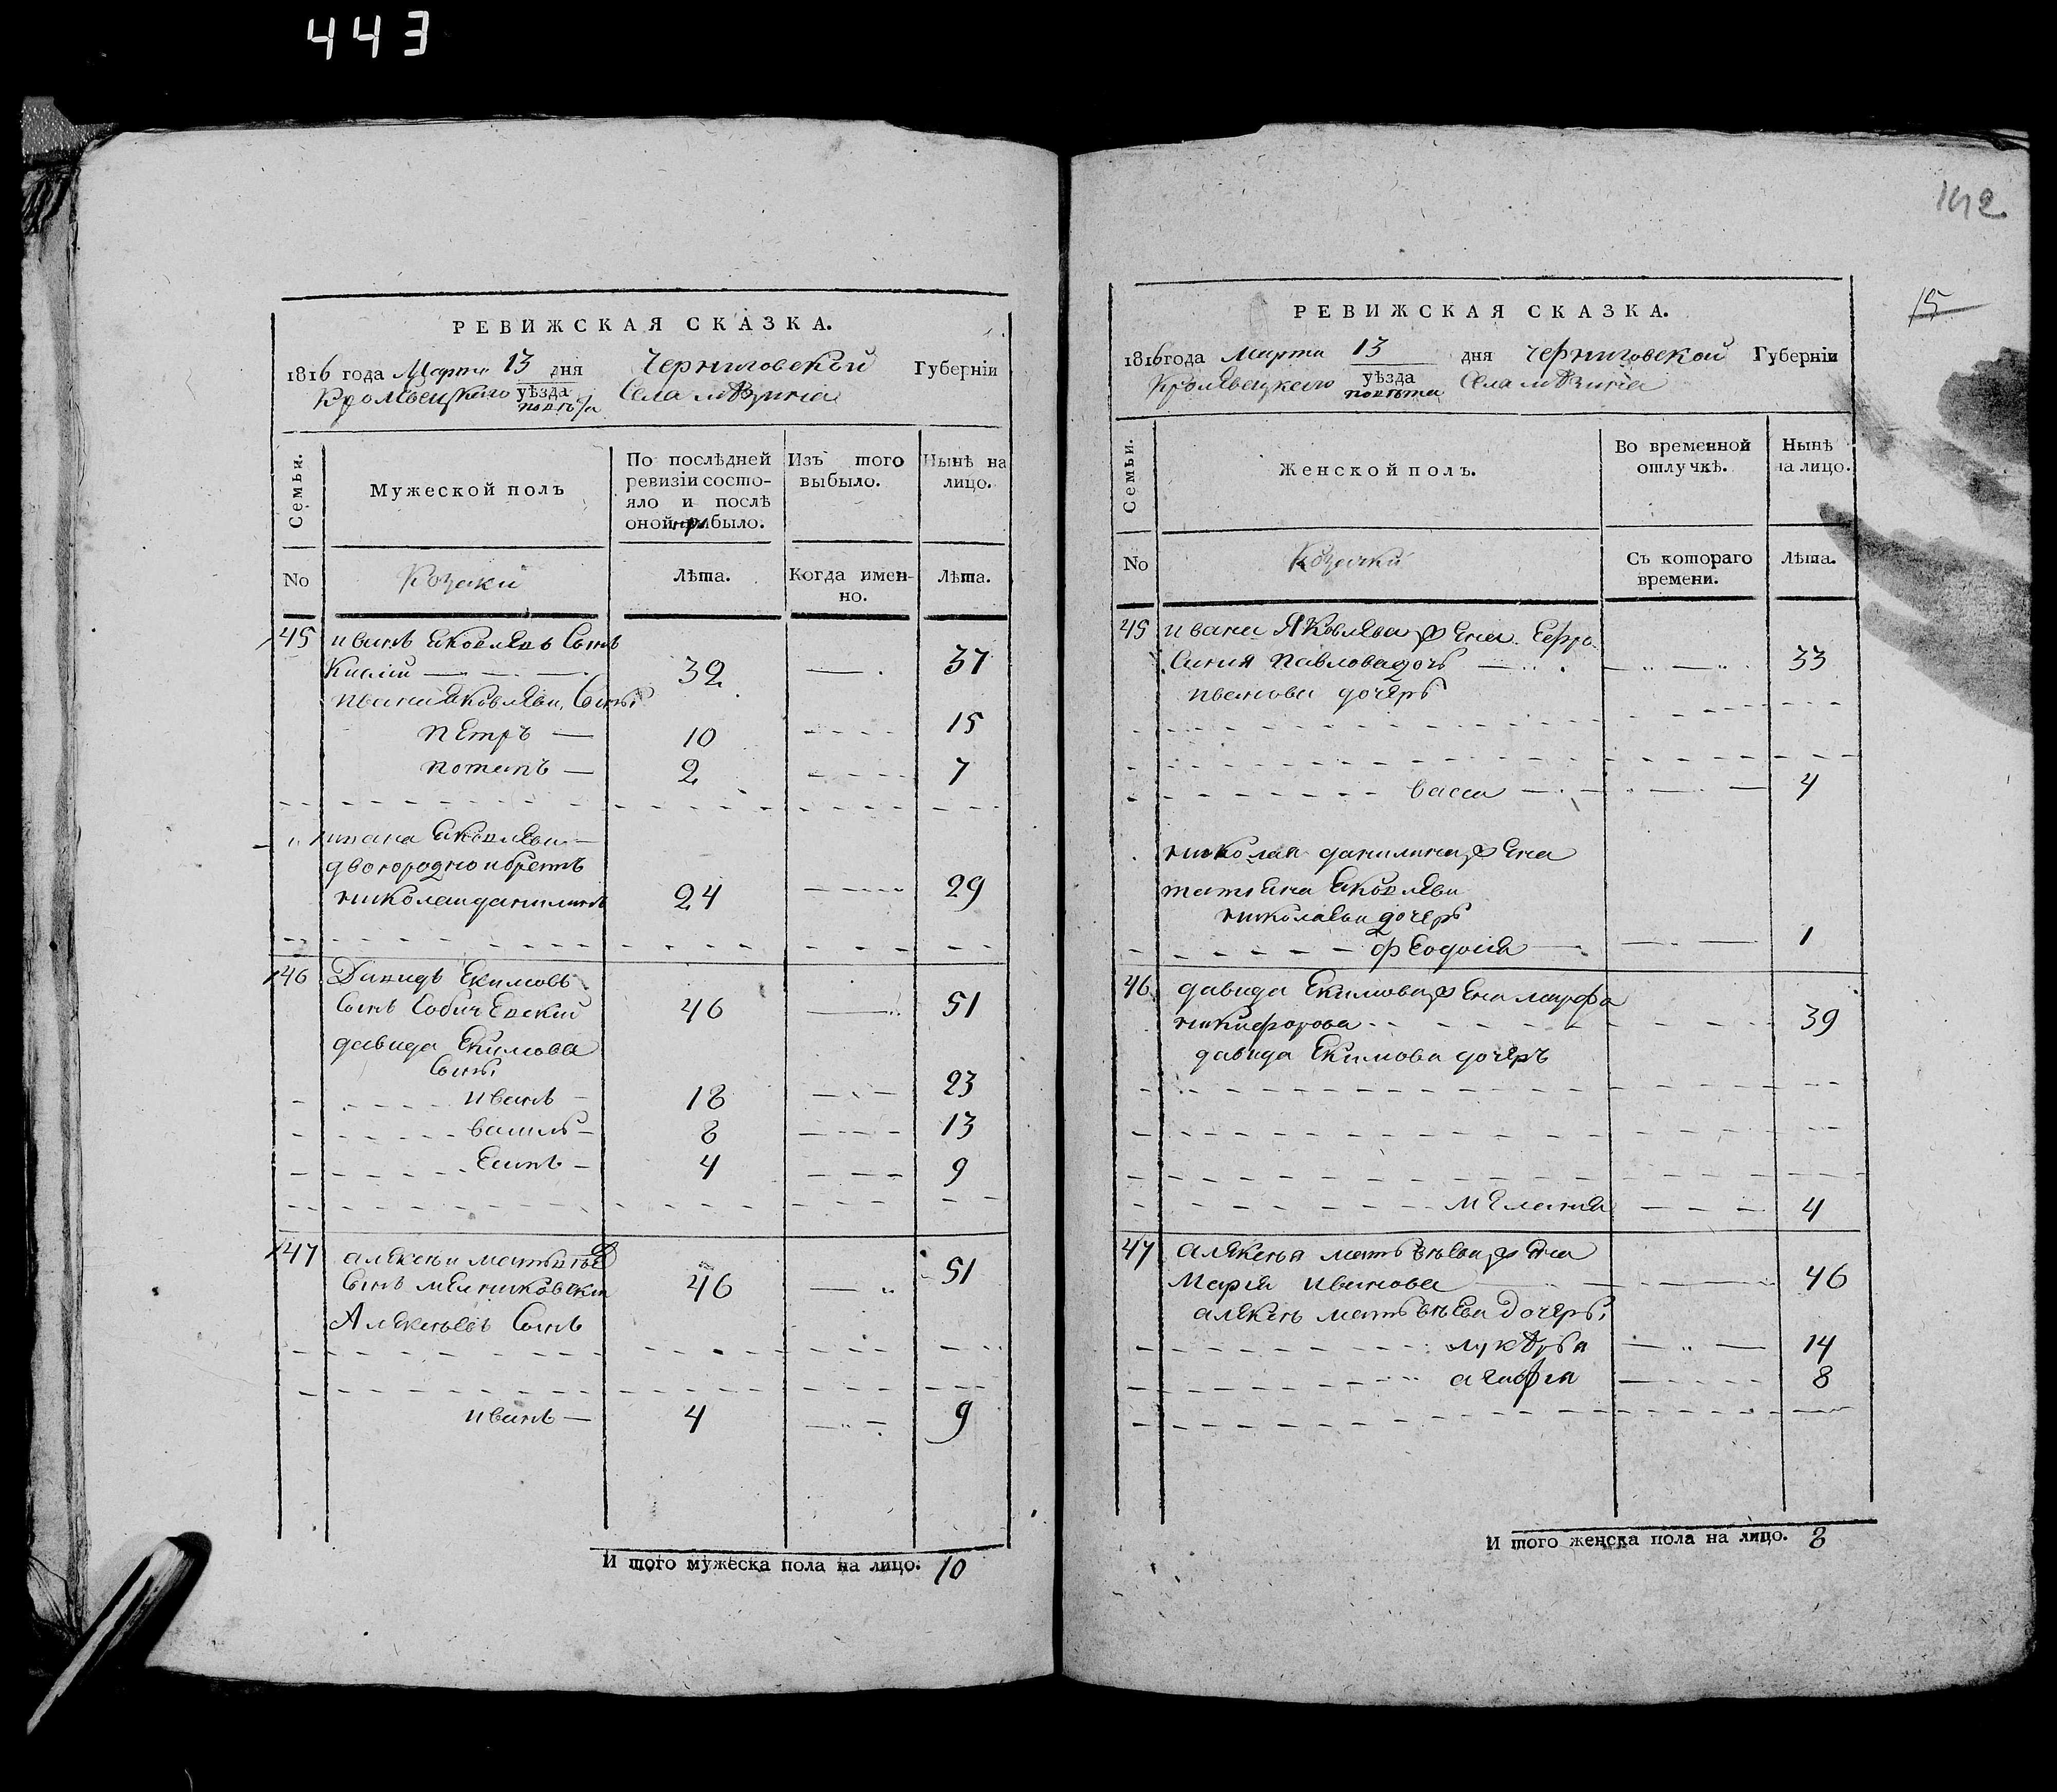 443
РЕВИЖСКАЯ СКАЗКА.
1816 года Марта 13 дня Черниговской Губерніи
Кролевецкого уѣзда Села мѣзина
повѣта
Семьи.
Мужеской полъ
По послѣдней ревизіи состо-
яло и послѣ оной прибыло.
Изъ того выбыло.
Ныпѣ на лицо.
No
Козаки
Лѣта.
Когда имен-
но.
Лѣта.
45 иванъ Яковлевъ Сынъ
32 37
ивана Яковлева Сыны
петръ — 10 15
потапъ — 2 7
ивана Яковлева
двоюродно и братъ
николаи данилинъ 24 29
46 Давидъ Екимовъ
Сынъ Собичевскии 46 51
давида Екимова
Сыны
иванъ 18 23
василь 8 13
Есипъ 4 9
47 алексеи матвѣевъ
Сынъ мелниковски 46 51
Алексеевъ Сынъ
иванъ — 4 9
И того мужеска пола на лицо. 10
142
15
РЕВИЖСКАЯ СКАЗКА.
1816 года Марта 13 дня Черниговской Губерніи
Кролевецкого уѣзда Села мѣзина
повѣта
Семьи.
Женской полъ.
Во временной
отлучкѣ.
Нынѣ
на лицо.
No
Козачки
Съ котораго
времени.
Лѣта.
45 ивана Яковлева жена Ефро
Синия павлова дочь 33
иванова дочерь
васса 4
николая данилина жена
татяна Яковлева
николаева дочерь
феодосия 1
46 давида Екимова жена марфа
никифорова 39
давида Екимова дочеръ
мелания 4
47 алексея матвѣева жена
Мария иванова 46
алексея матвѣева дочеры
лукѣрья 14
агафия 8
И того женска пола на лицо. 8